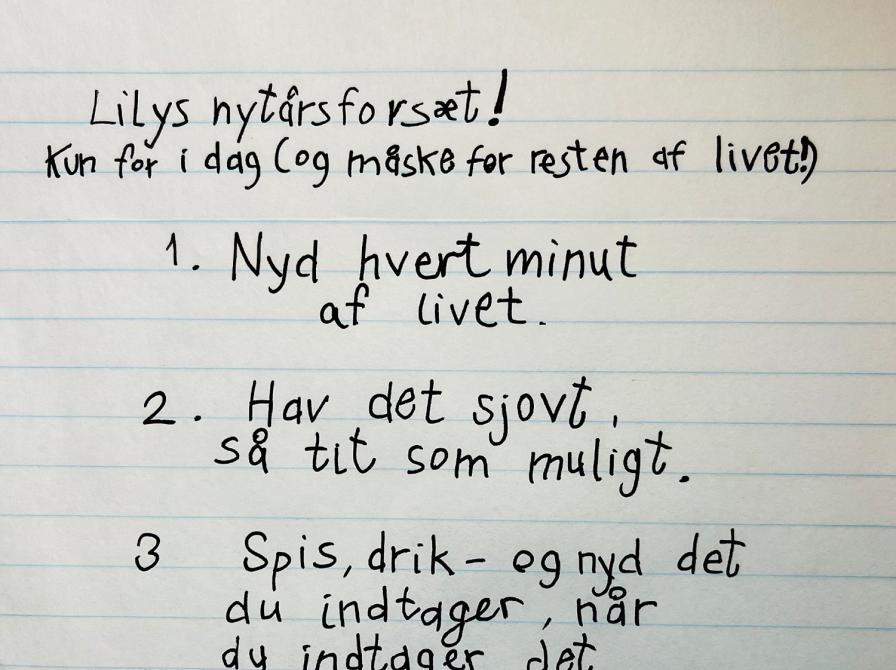 Lilys nytårsforsæt!
Kun for i dag (og måske for resten af livet!)
1. Nyd hvert minut
af livet.
2. Hav det sjovt,
så tit som muligt.
3 Spis, drik - og nyd det
du indtager, når
du indtager det